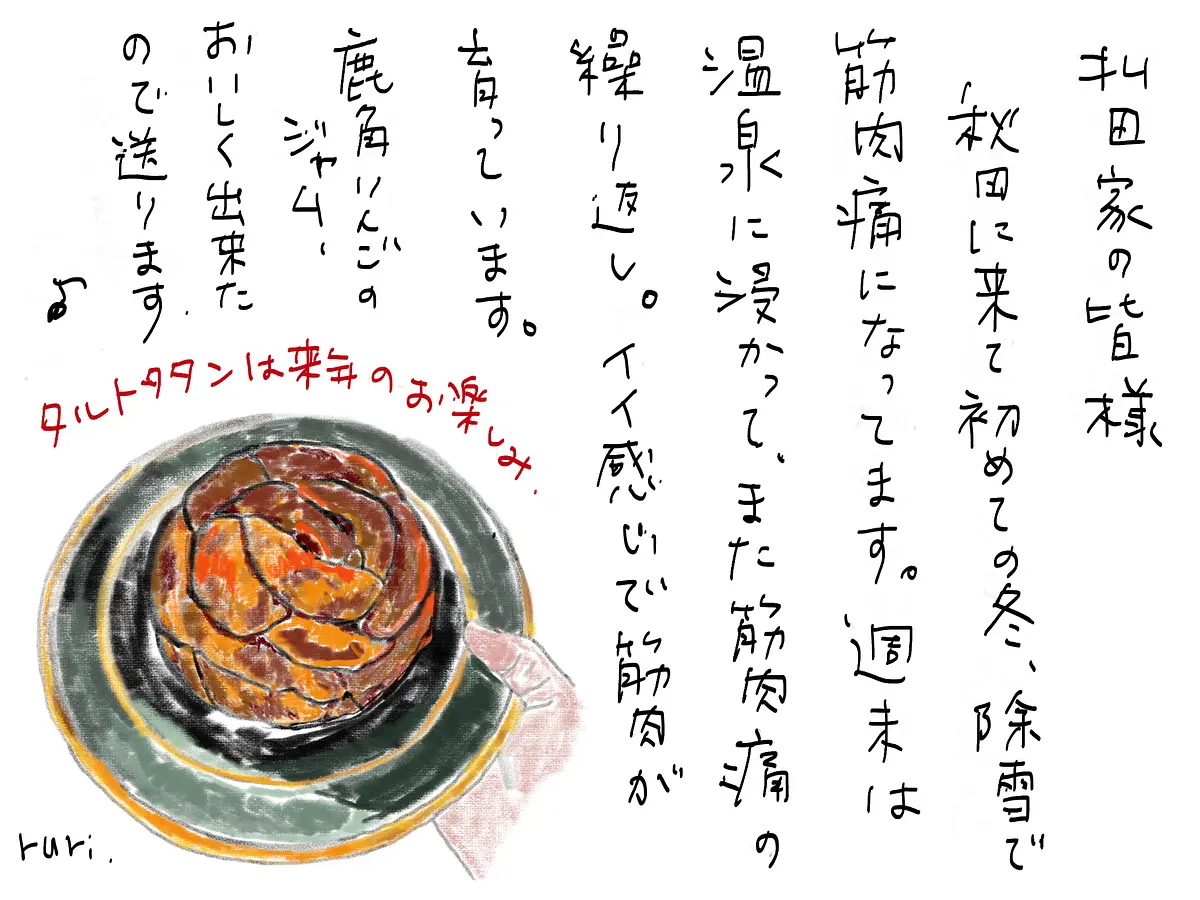 払田家の皆様
秋田に来て初めての冬、除雪で
筋肉痛になってます。週末は
温泉に浸かって、また筋肉痛の
繰り返し。イイ感じで筋肉が
育っています。
鹿角りんごの
ジャム、
おいしく出来た
ので送ります♪
タルトタタンは来年のお楽しみ.
ruri.